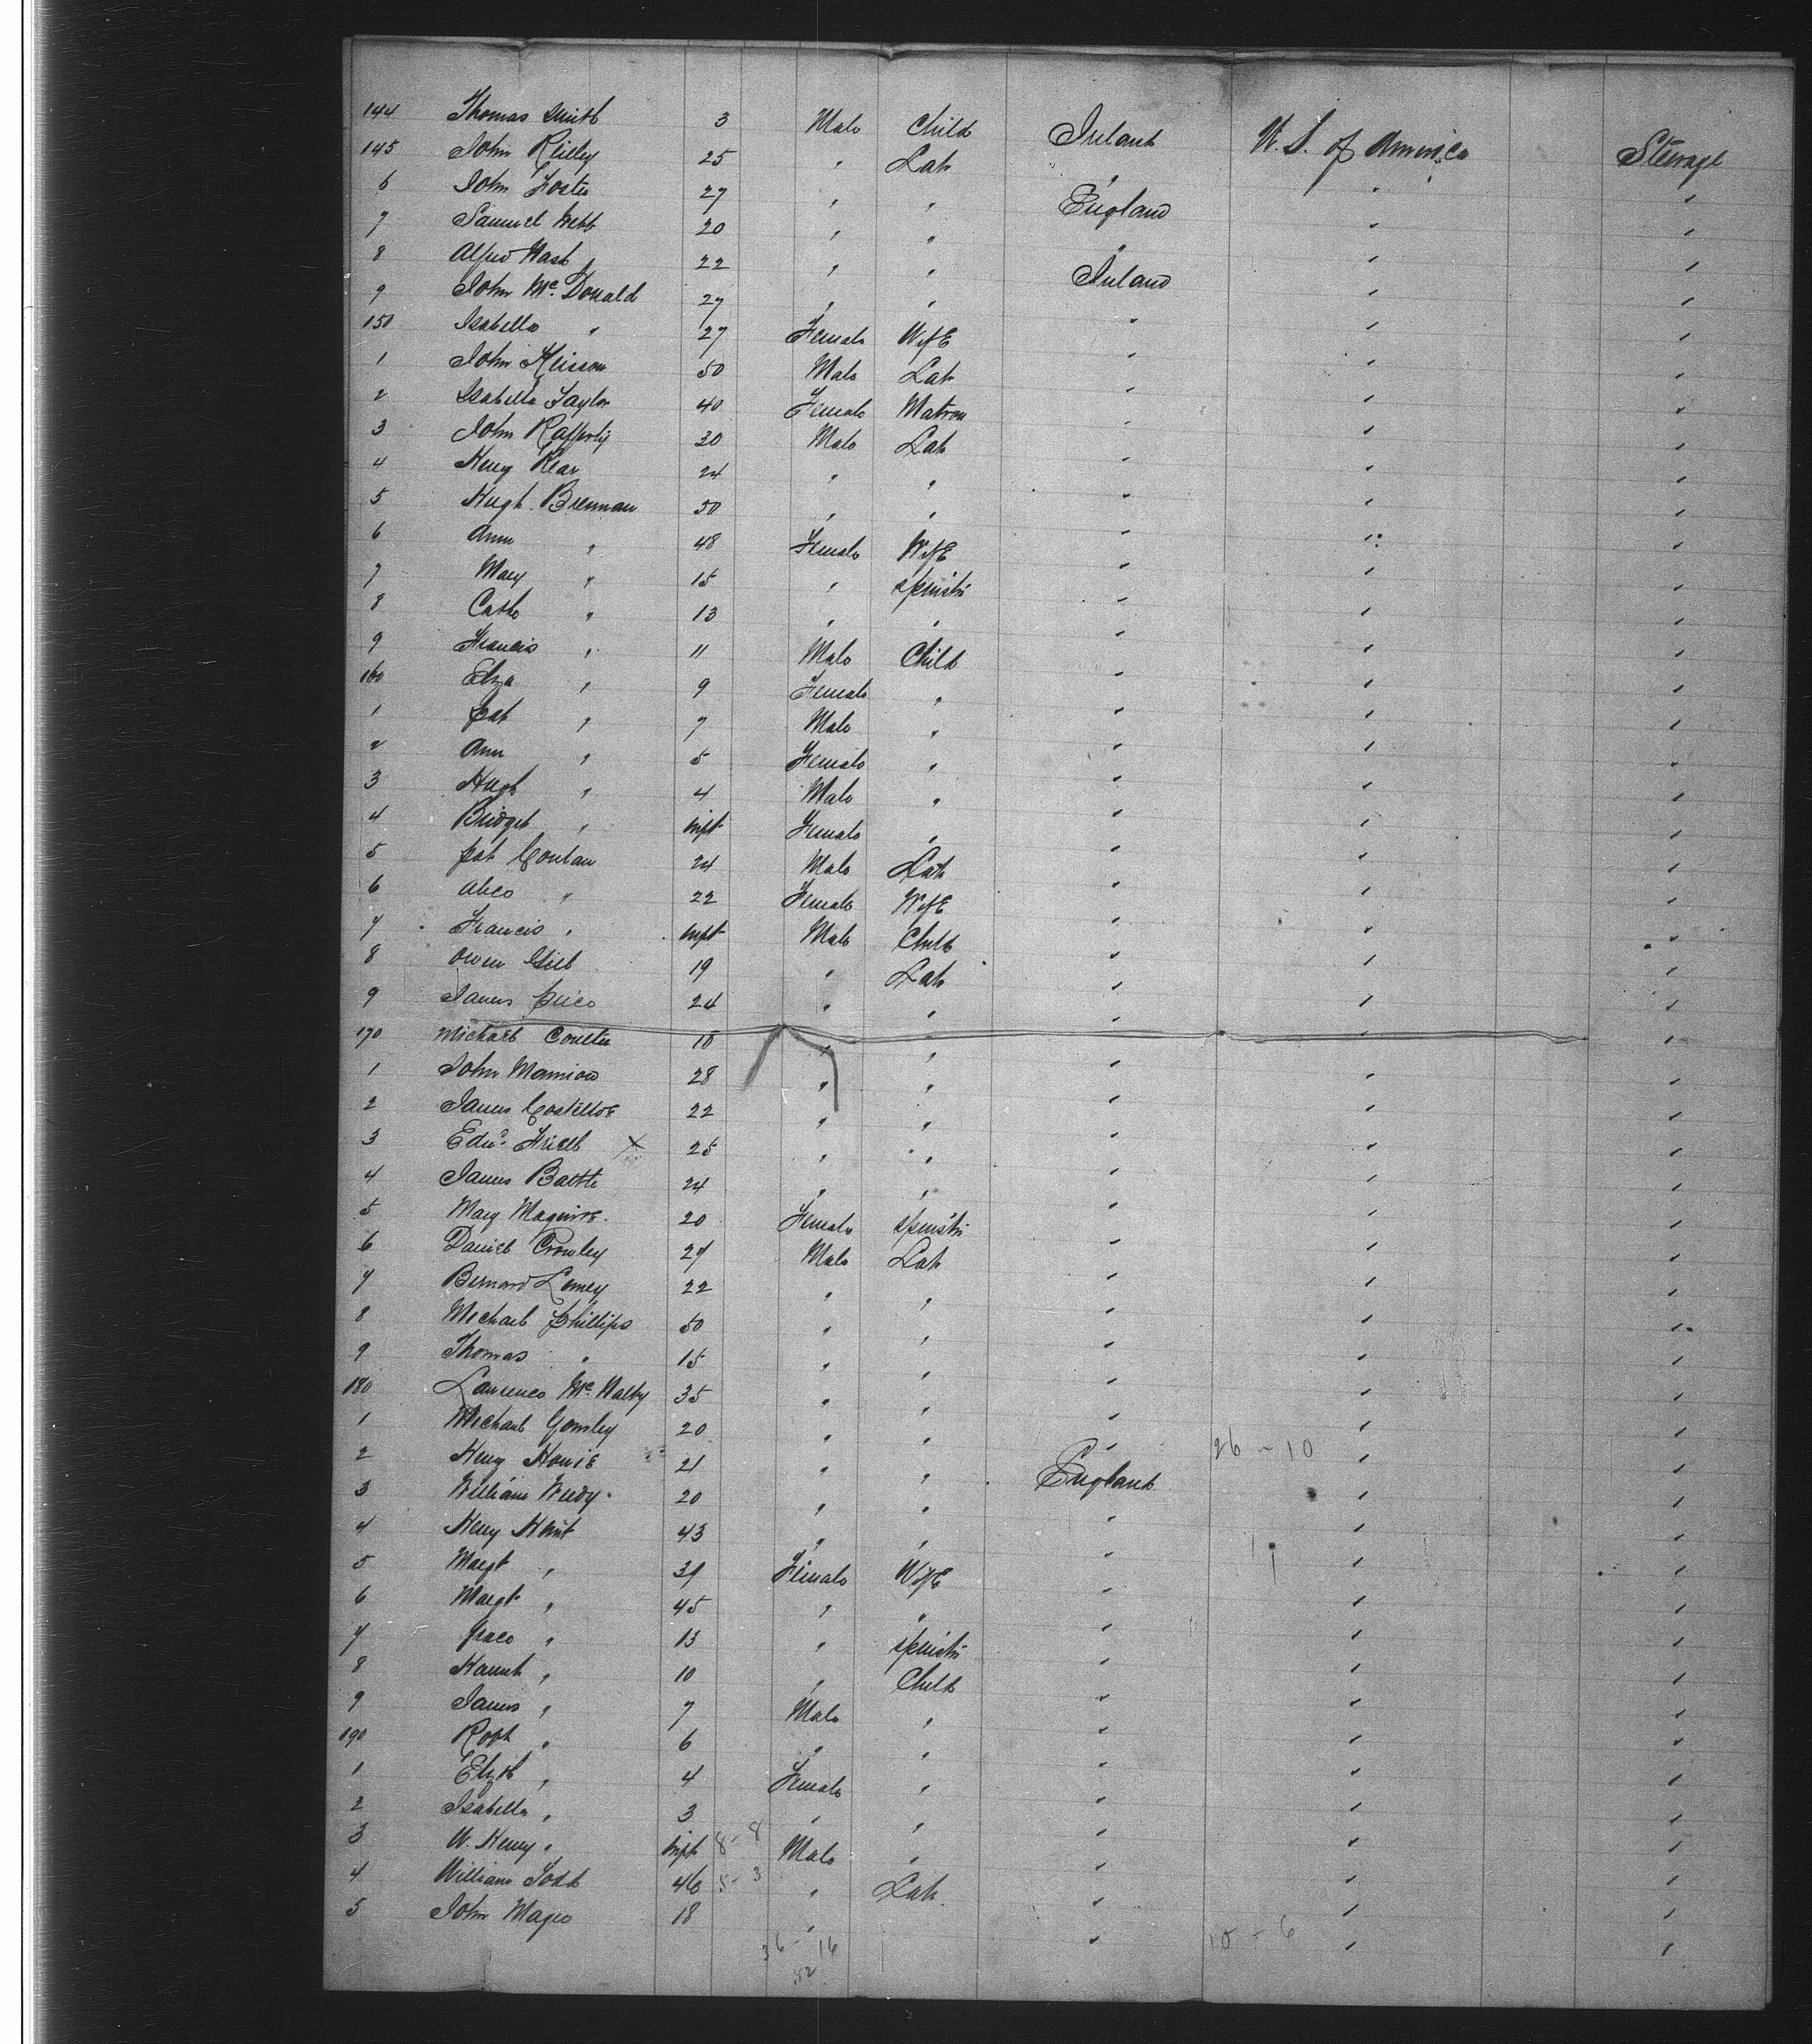 144 Thomas Smith 3 Male Child Ireland U. S. of America Steerage
145 John Reilly 25 " Lab " " "
6 John Foster 27 " " England " "
7 Samuel Webb 20 " " " " "
8 Alfred Nash 22 " " Ireland " "
9 John McDonald 27 " " " " "
150 Isabella " 27 Female Wife " " "
1 John 50 Male Lab " " "
2 Isabella Taylor 40 Female Matron " " "
3 John Rafferty 30 Male Lab " " "
4 Henry Kear 24 " " " " "
5 Hugh Brennan 50 " " " " "
6 Ann " 48 Female Wife " " "
7 Mary " 15 " Spinstr " " "
8 Cath " 13 " " " " "
9 Francis " 11 Male Child " " "
160 Eliza " 9 Female " " " "
1 Pat " 7 Male " " " "
2 Ann " 5 Female " " " "
3 Hugh " 4 Male " " " "
4 Bridget " inft Female " " " "
5 Pat Conlan 24 Male Lab " " "
6 Alice " 22 Female Wife " " "
7 Francis " inft Male Child " " "
8 Owen 19 " Lab " " "
9 James Price 24 " " " " "
170 Michael Coulter 18 " " " " "
1 John Mannion 28 " " " " "
2 James Costelloe 22 " " " " "
3 Edwd. Friell X 25 " " " " "
4 James Battle 24 " " " " "
5 Mary Maguire 20 Female Spinstr " " "
6 Daniel Crowley 27 Male Lab " " "
7 Bernard 22 " " " " "
8 Michael Phillips 50 " " " " "
9 Thomas " 15 " " " " "
180 Laurence McNalty 35 " " " " "
1 Michael Gormley 20 " " " " "
2 Henry Howie 21 " " England 26 - 10 " "
3 William 20 " " " " "
4 Henry Hunt 43 " " " " "
5 Margt " 39 Female Wife " " "
6 Margt " 45 " " " " "
7 Grace " 13 " Spinstr " " "
8 Hannh " 10 " Child " " "
9 James " 7 Male " " " "
190 Robt " 6 " " " " "
1 Elizth " 4 Female " " " "
2 Isabella " 3 " " " " "
3 W. Henry " inft 8 - 8 Male " " " "
4 William Todd 46 5 - 3 " Lab " " "
5 John Magee 18 " " 10 - 6 " "
36 - 16
52